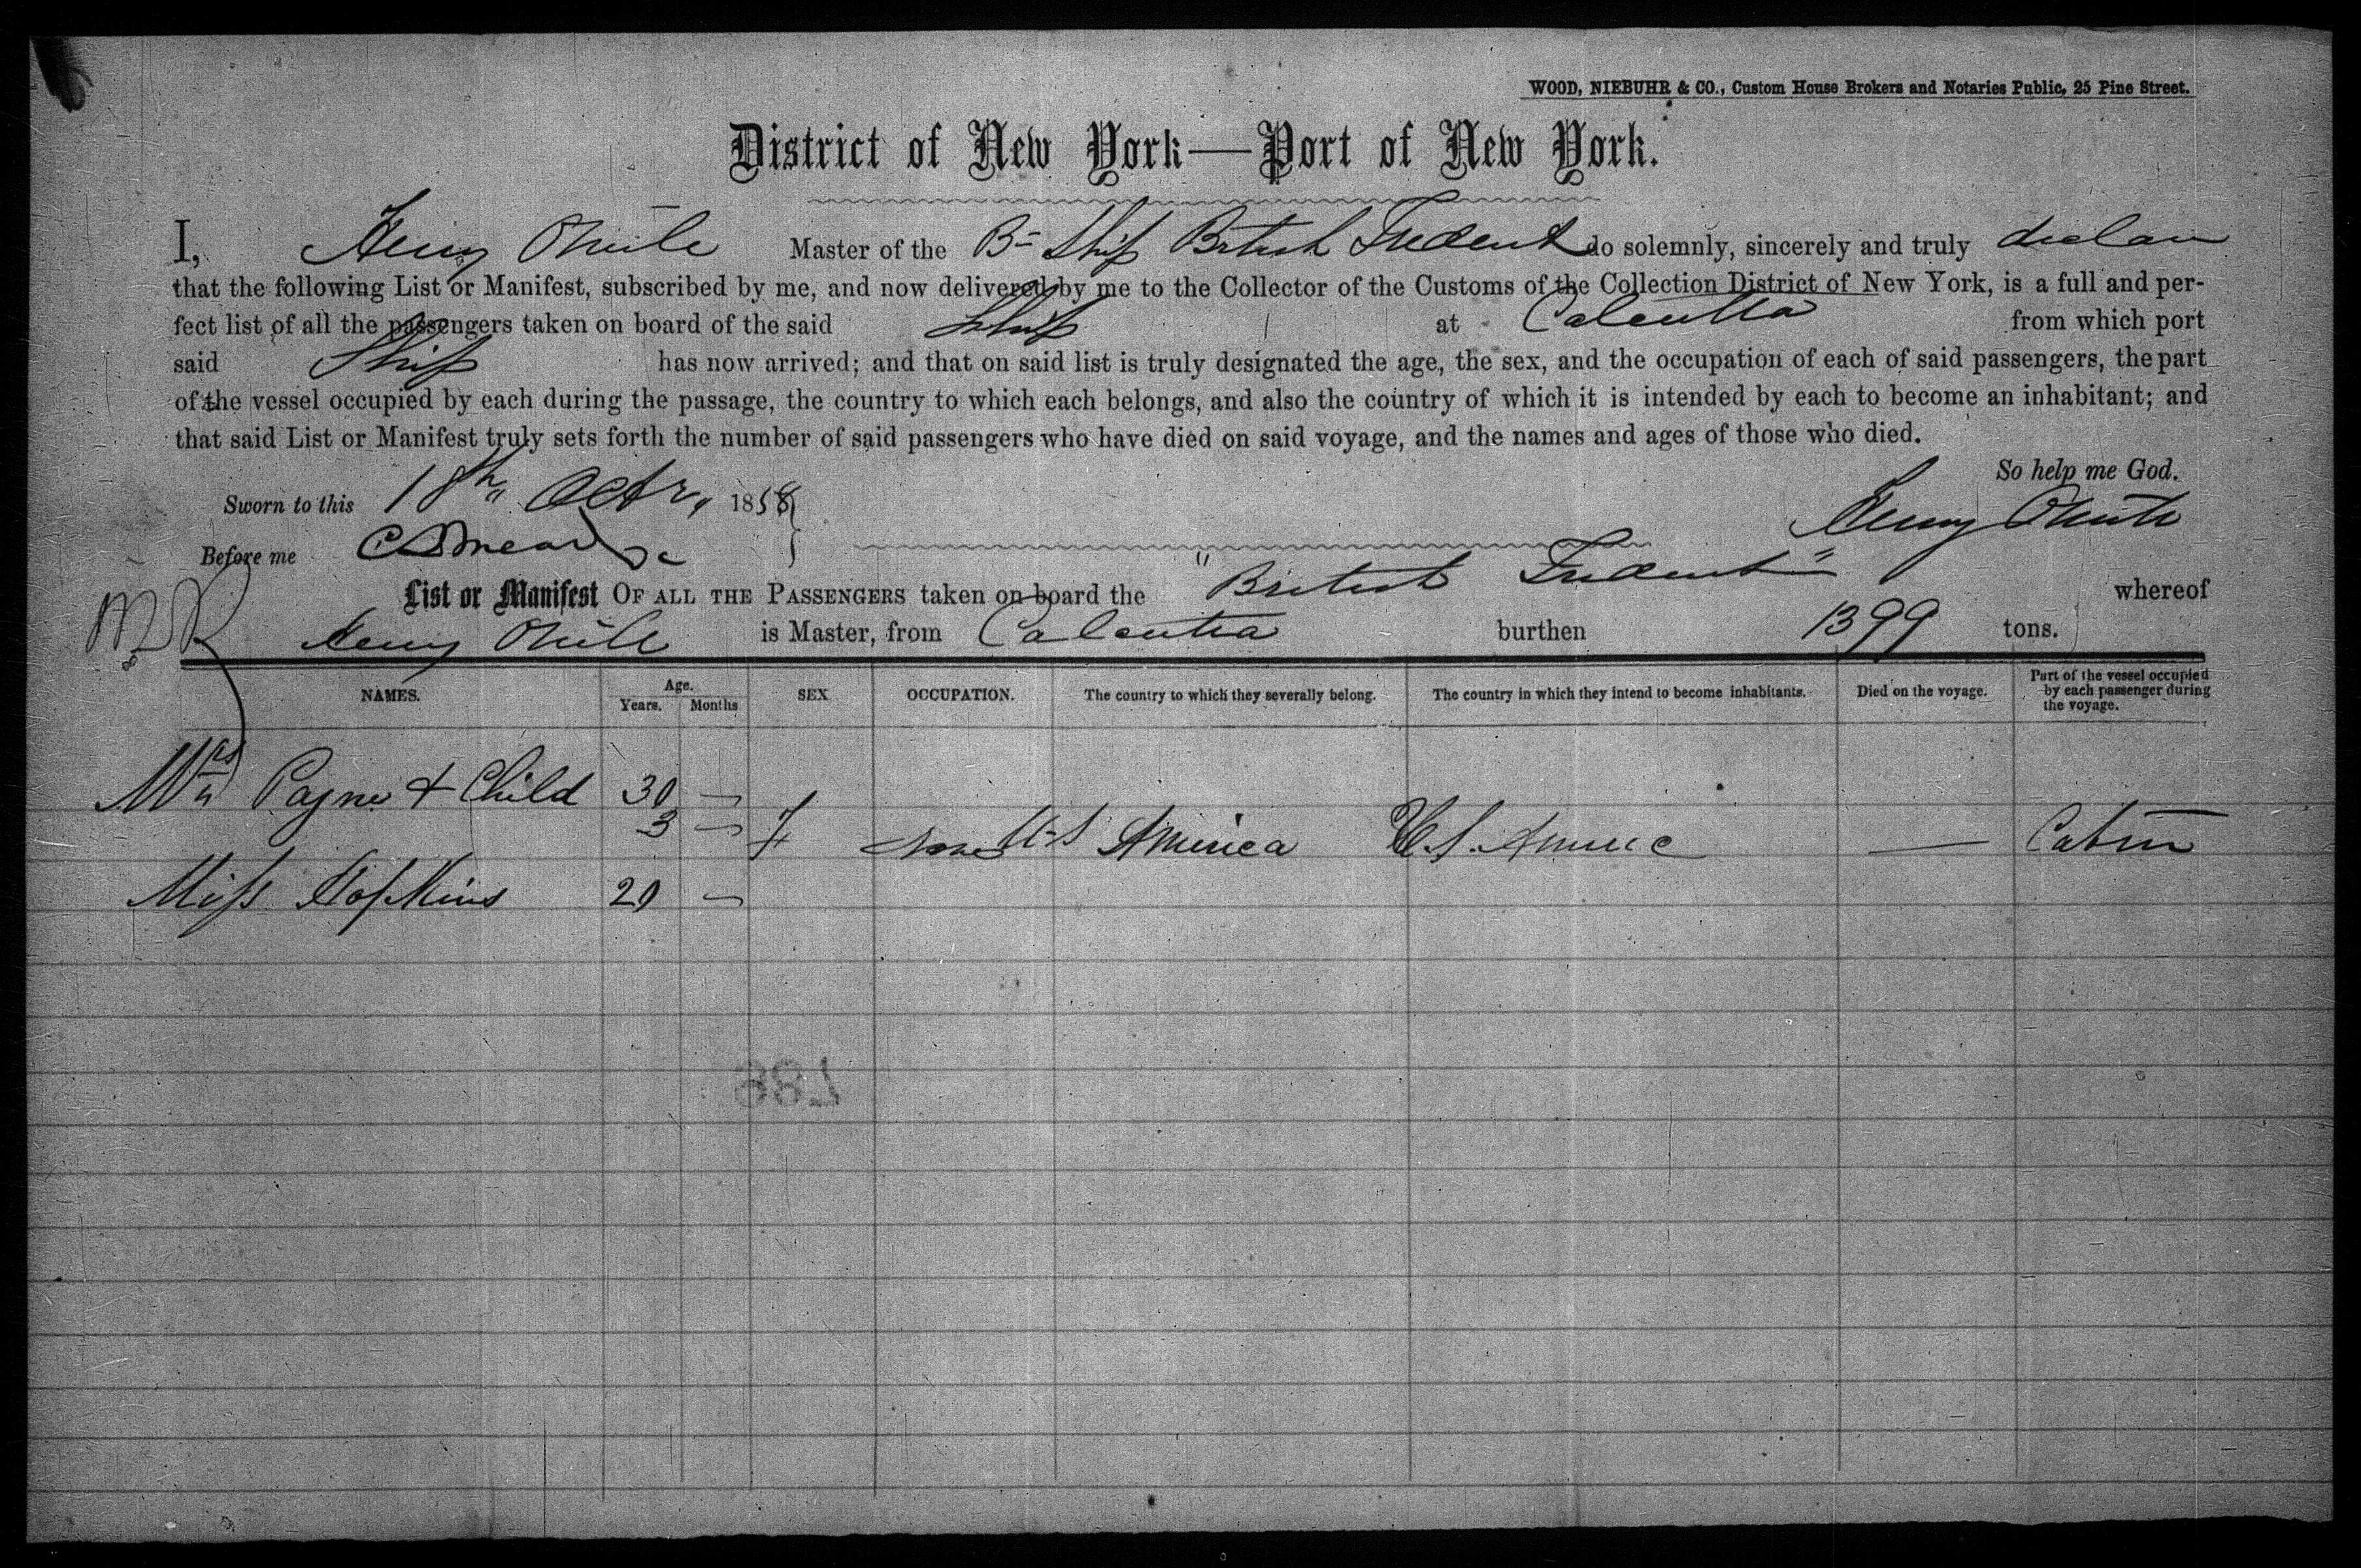 WOOD, NIEBUHR & CO., Custom House Brokers and Notaries Public, 25 Pine Street.
District of New York—Port of New York.
I, Henry Master of the Br Ship British Trident do solemnly, sincerely and truly declare
that the following List or Manifest, subscribed by me, and now delivered by me to the Collector of the Customs of the Collection District of New York, is a full and per-
fect list of all the passengers taken on board of the said Ship at Calcutta from which port
said Ship has now arrived; and that on said list is truly designated the age, the sex, and the occupation of each of said passengers, the part
of the vessel occupied by each during the passage, the country to which each belongs, and also the country of which it is intended by each to become an inhabitant; and
that said List or Manifest truly sets forth the number of said passengers who have died on said voyage, and the names and ages of those who died.
So help me God.
Sworn to this 18th Octr, 1858
Henry
Before me
List or Manifest OF ALL THE PASSENGERS taken on board the "British Trident" whereof
Henry is Master, from Calcutta burthen 1399 tons.
NAMES. Age. Years. Months SEX OCCUPATION. The country to which they severally belong. The country in which they intend to become inhabitants. Died on the voyage. Part of the vessel occupied by each passenger during the voyage.
Mrs Payne & Child 30 —
3 — F None U.S America U.S. Americ — Cabin
Miss Hopkins 20 —
987